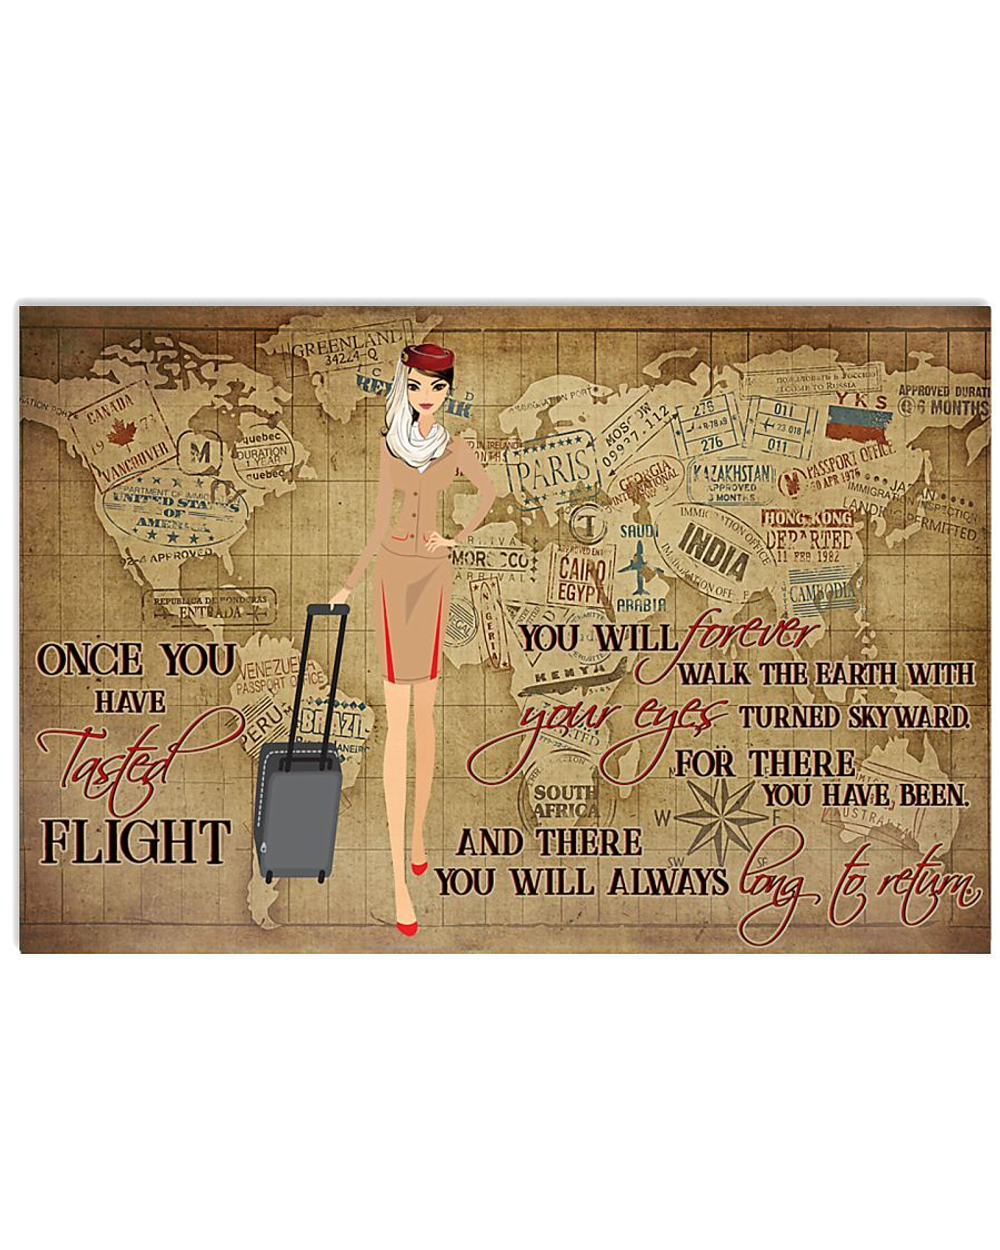 ONCE YOU
HAVE
Tasted
FLIGHT
YOU WILL forever
WALK THE EARTH WITH
your eyes TURNED SKYWARD.
FOR THERE
YOU HAVE BEEN.
AND THERE
YOU WILL ALWAYS long to return.
GREENLAND
34224-Q
CANADA
VANCOUVER
M
quebec
DURATION
1 YEAR
quebec
UNITED STATES
OF
AMERICA
APPROVED
REPUBLICA DE HONDURAS
ENTRADA
VENEZUELA
PASSPORT OFFICE
PERU
BRAZIL
PARIS
MOSCOW
09937.112
276
R-78
276
011
23 018
011
YKS
APPROVED DURATI
6 MONTHS
GEORGIA
INTERNATIONAL
KAZAKHSTAN
APPROVED
3 MONTHS
PASSPORT OFFICE
30 APR 1976
JAPAN
IMMIGRATION INSPECTION
LANDING PERMITTED
T
SAUDI
ARABIA
IMMIGRATION OFFICE
INDIA
HONG KONG
DEPARTED
11 FEB 1982
CAMBODIA
MOROCCO
ARRIVAL
CAIRO
EGYPT
KENYA
SOUTH
AFRICA
AUSTRALIA
W
SW